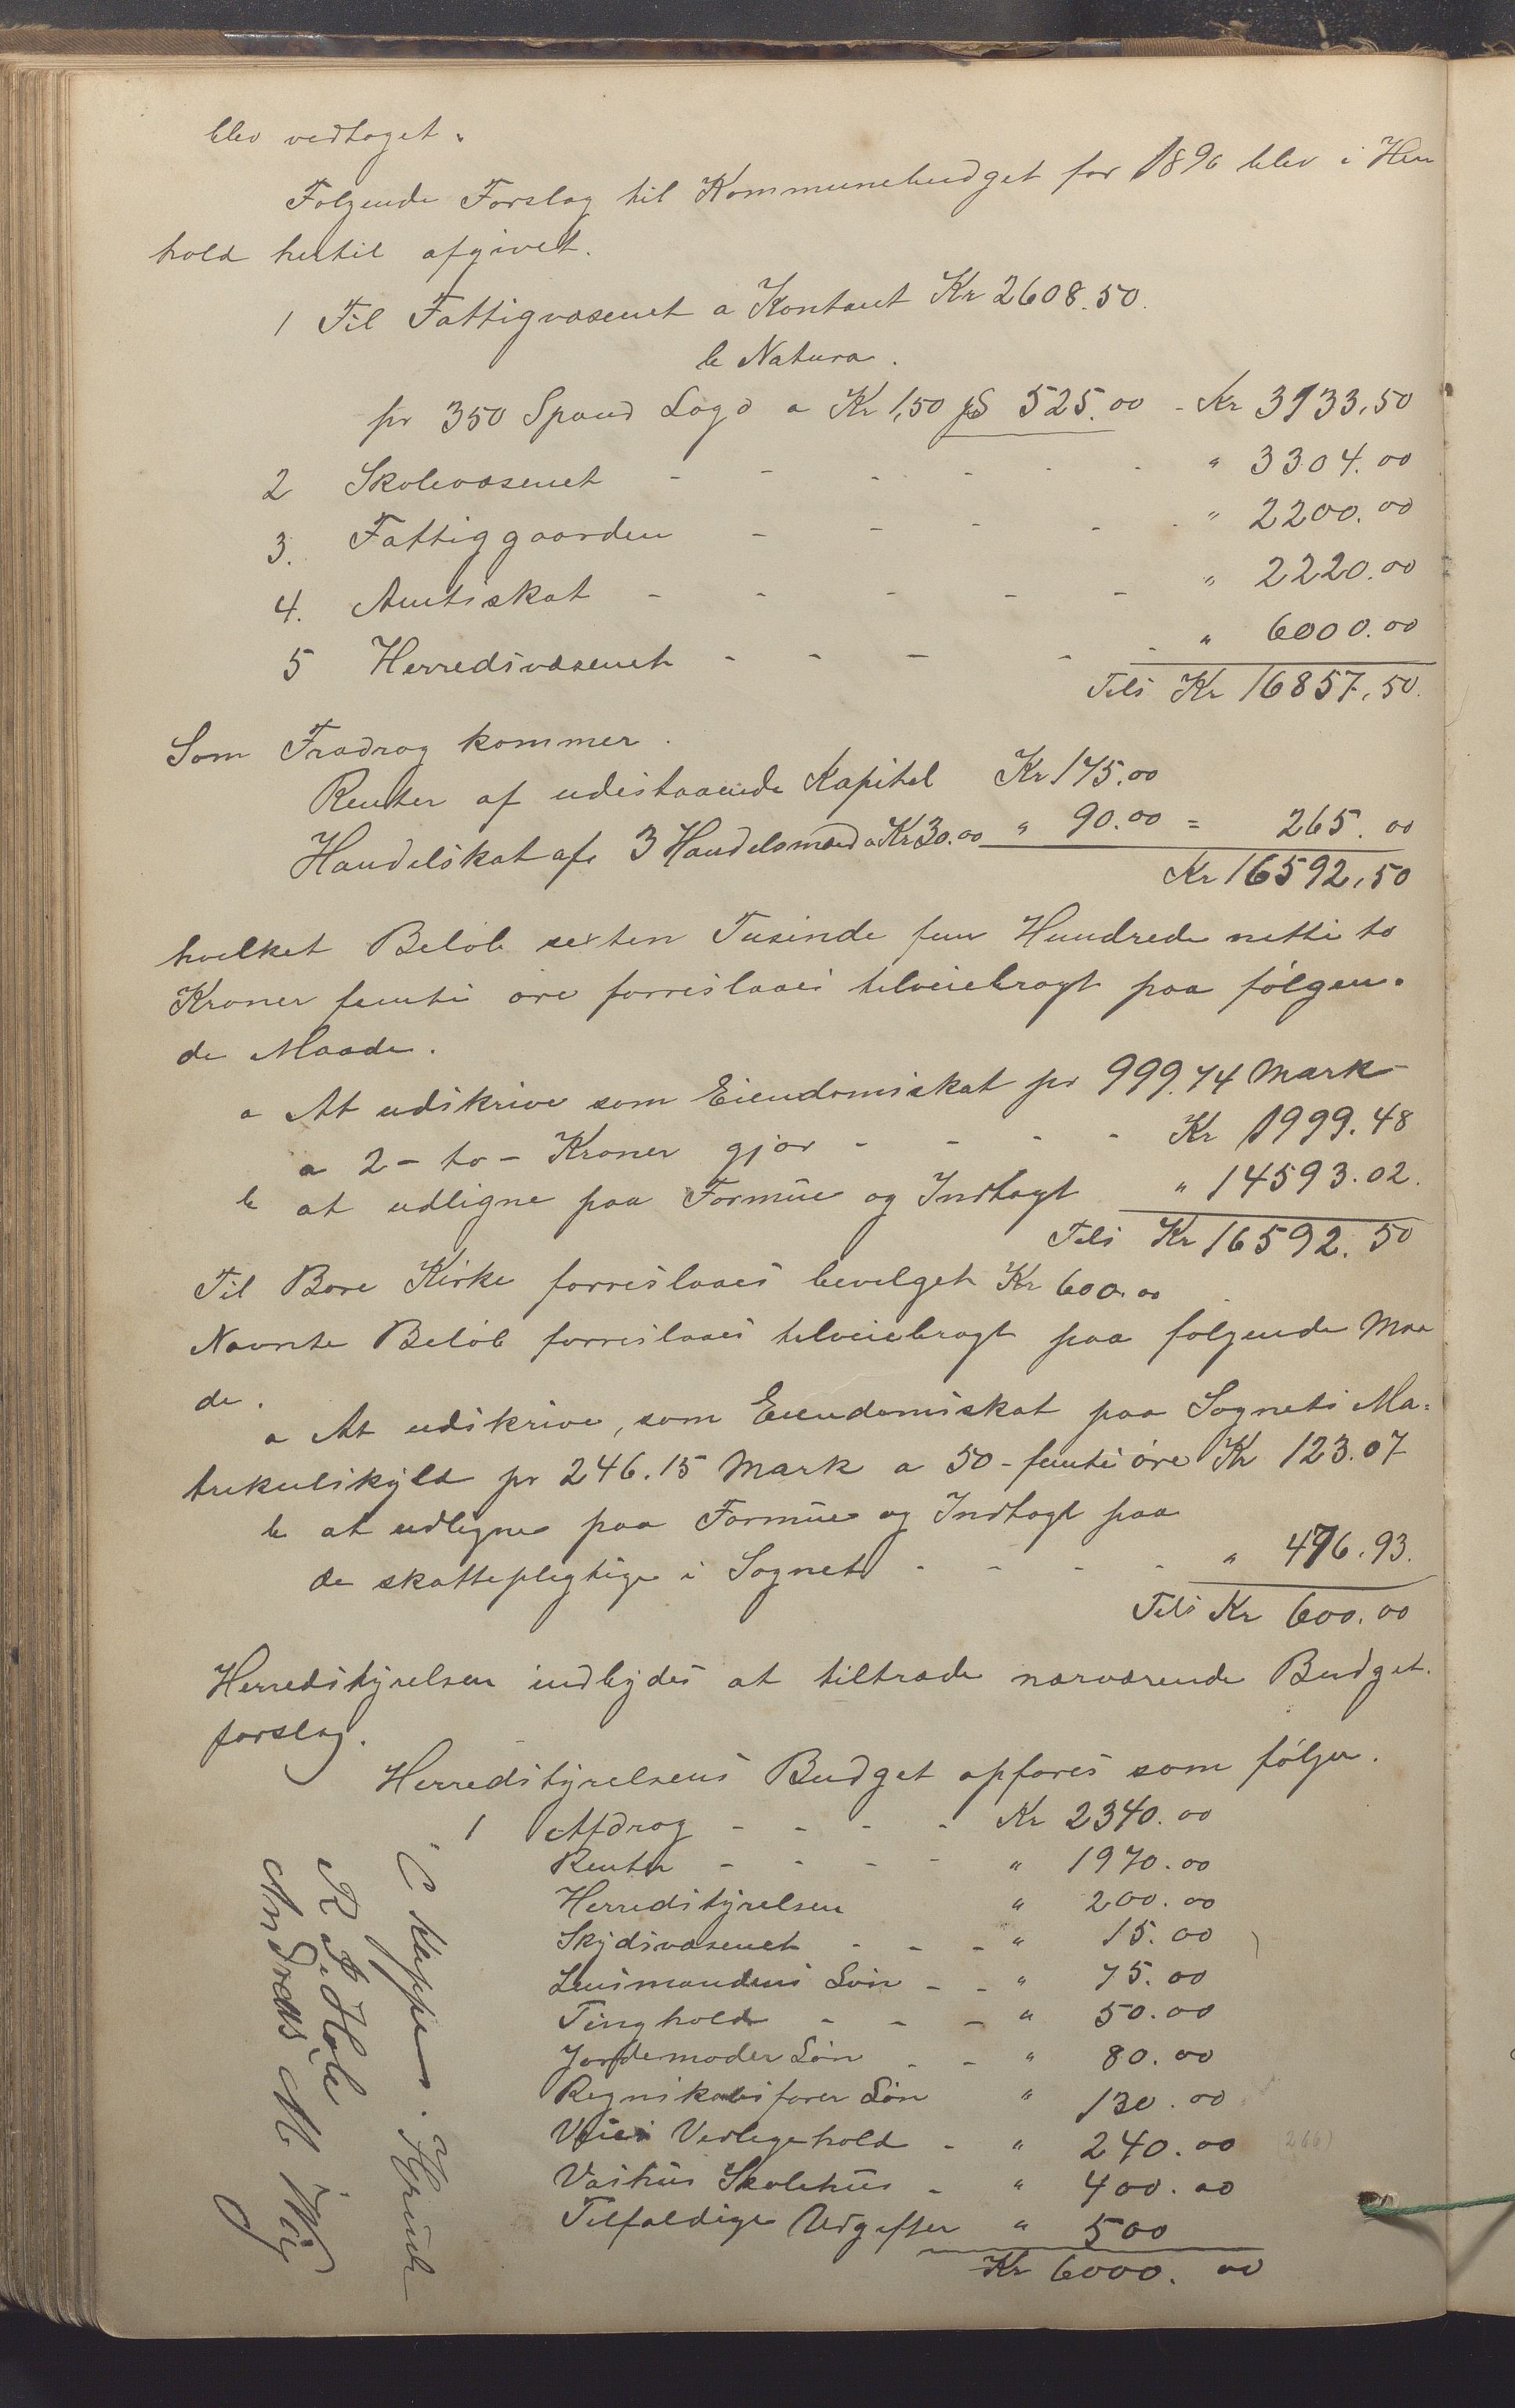 blev vedtaget.
Følgende Forslag til Kommunebudget for 1896 blev i Hen
hold hertil afgivet.
1 Til Fattigvæsenet a Kontant Kr 2608.50.
b Natura.
pr 350 Spand a Kr 1,50 525.00 - Kr 3133,50
2 Skolevæsenet - - - - - - " 3304.00
3. Fattiggaarden - - - - - " 2200.00
4. Amtsskat - - - - - " 2220.00
5 Herredsvæsenet - - - - - " 6000.00
Tils Kr 16857,50.
Som Fradrag kommer.
Renter af udestaaende Kapital Kr 175.00
Handelskat af 3 Handelsmænd a Kr 30.00 " 90.00 = 265.00
Kr 16592,50
hvilket Beløb sexten Tusinde fem Hundrede nitti to
Kroner femti øre forreslaaes tilveiebragt paa følgen-
de Maade.
a At udskrive som Eiendomsskat pr 999.74 Mark
a 2 - to - Kroner gjør - - - - Kr 1999.48
b at udligne paa Formue og Indtægt " 14593.02.
Tils Kr 16592.50
Til Bore Kirke forreslaaes bevilget Kr 600.00
Nævnte Beløb forreslaaes tilveiebragt paa følgende Maa
de.
a At udskrive, som Eiendomsskat paa Sognets Ma-
trikulskyld pr 246.15 Mark a 50 - femti øre Kr 123.07
b at udligne paa Formue og Indtægt paa
de skattepligtige i Sognet - - - - " 476.93.
Tils Kr 600.00
Herredstyrelsen indbydes at tiltræde nærværende Budget-
forslag.
Herredstyrelsens Budget opføres som følger.
1 Afdrag - - - - Kr 2340.00
Renter - - - - " 1970.00
Herredstyrelsen " 200.00
Skydsvæsenet - - - " 15.00
Lensmandens Løn - - " 75.00
Tinghold - - - " 50.00
Jordemoder Løn - - " 80.00
Regnskabsfører Løn " 130.00
Veies Vedligehold - " 240.00
Skolehus - " 400.00
Tilfældige Udgifter " 500
Kr 6000.00
Andreas M